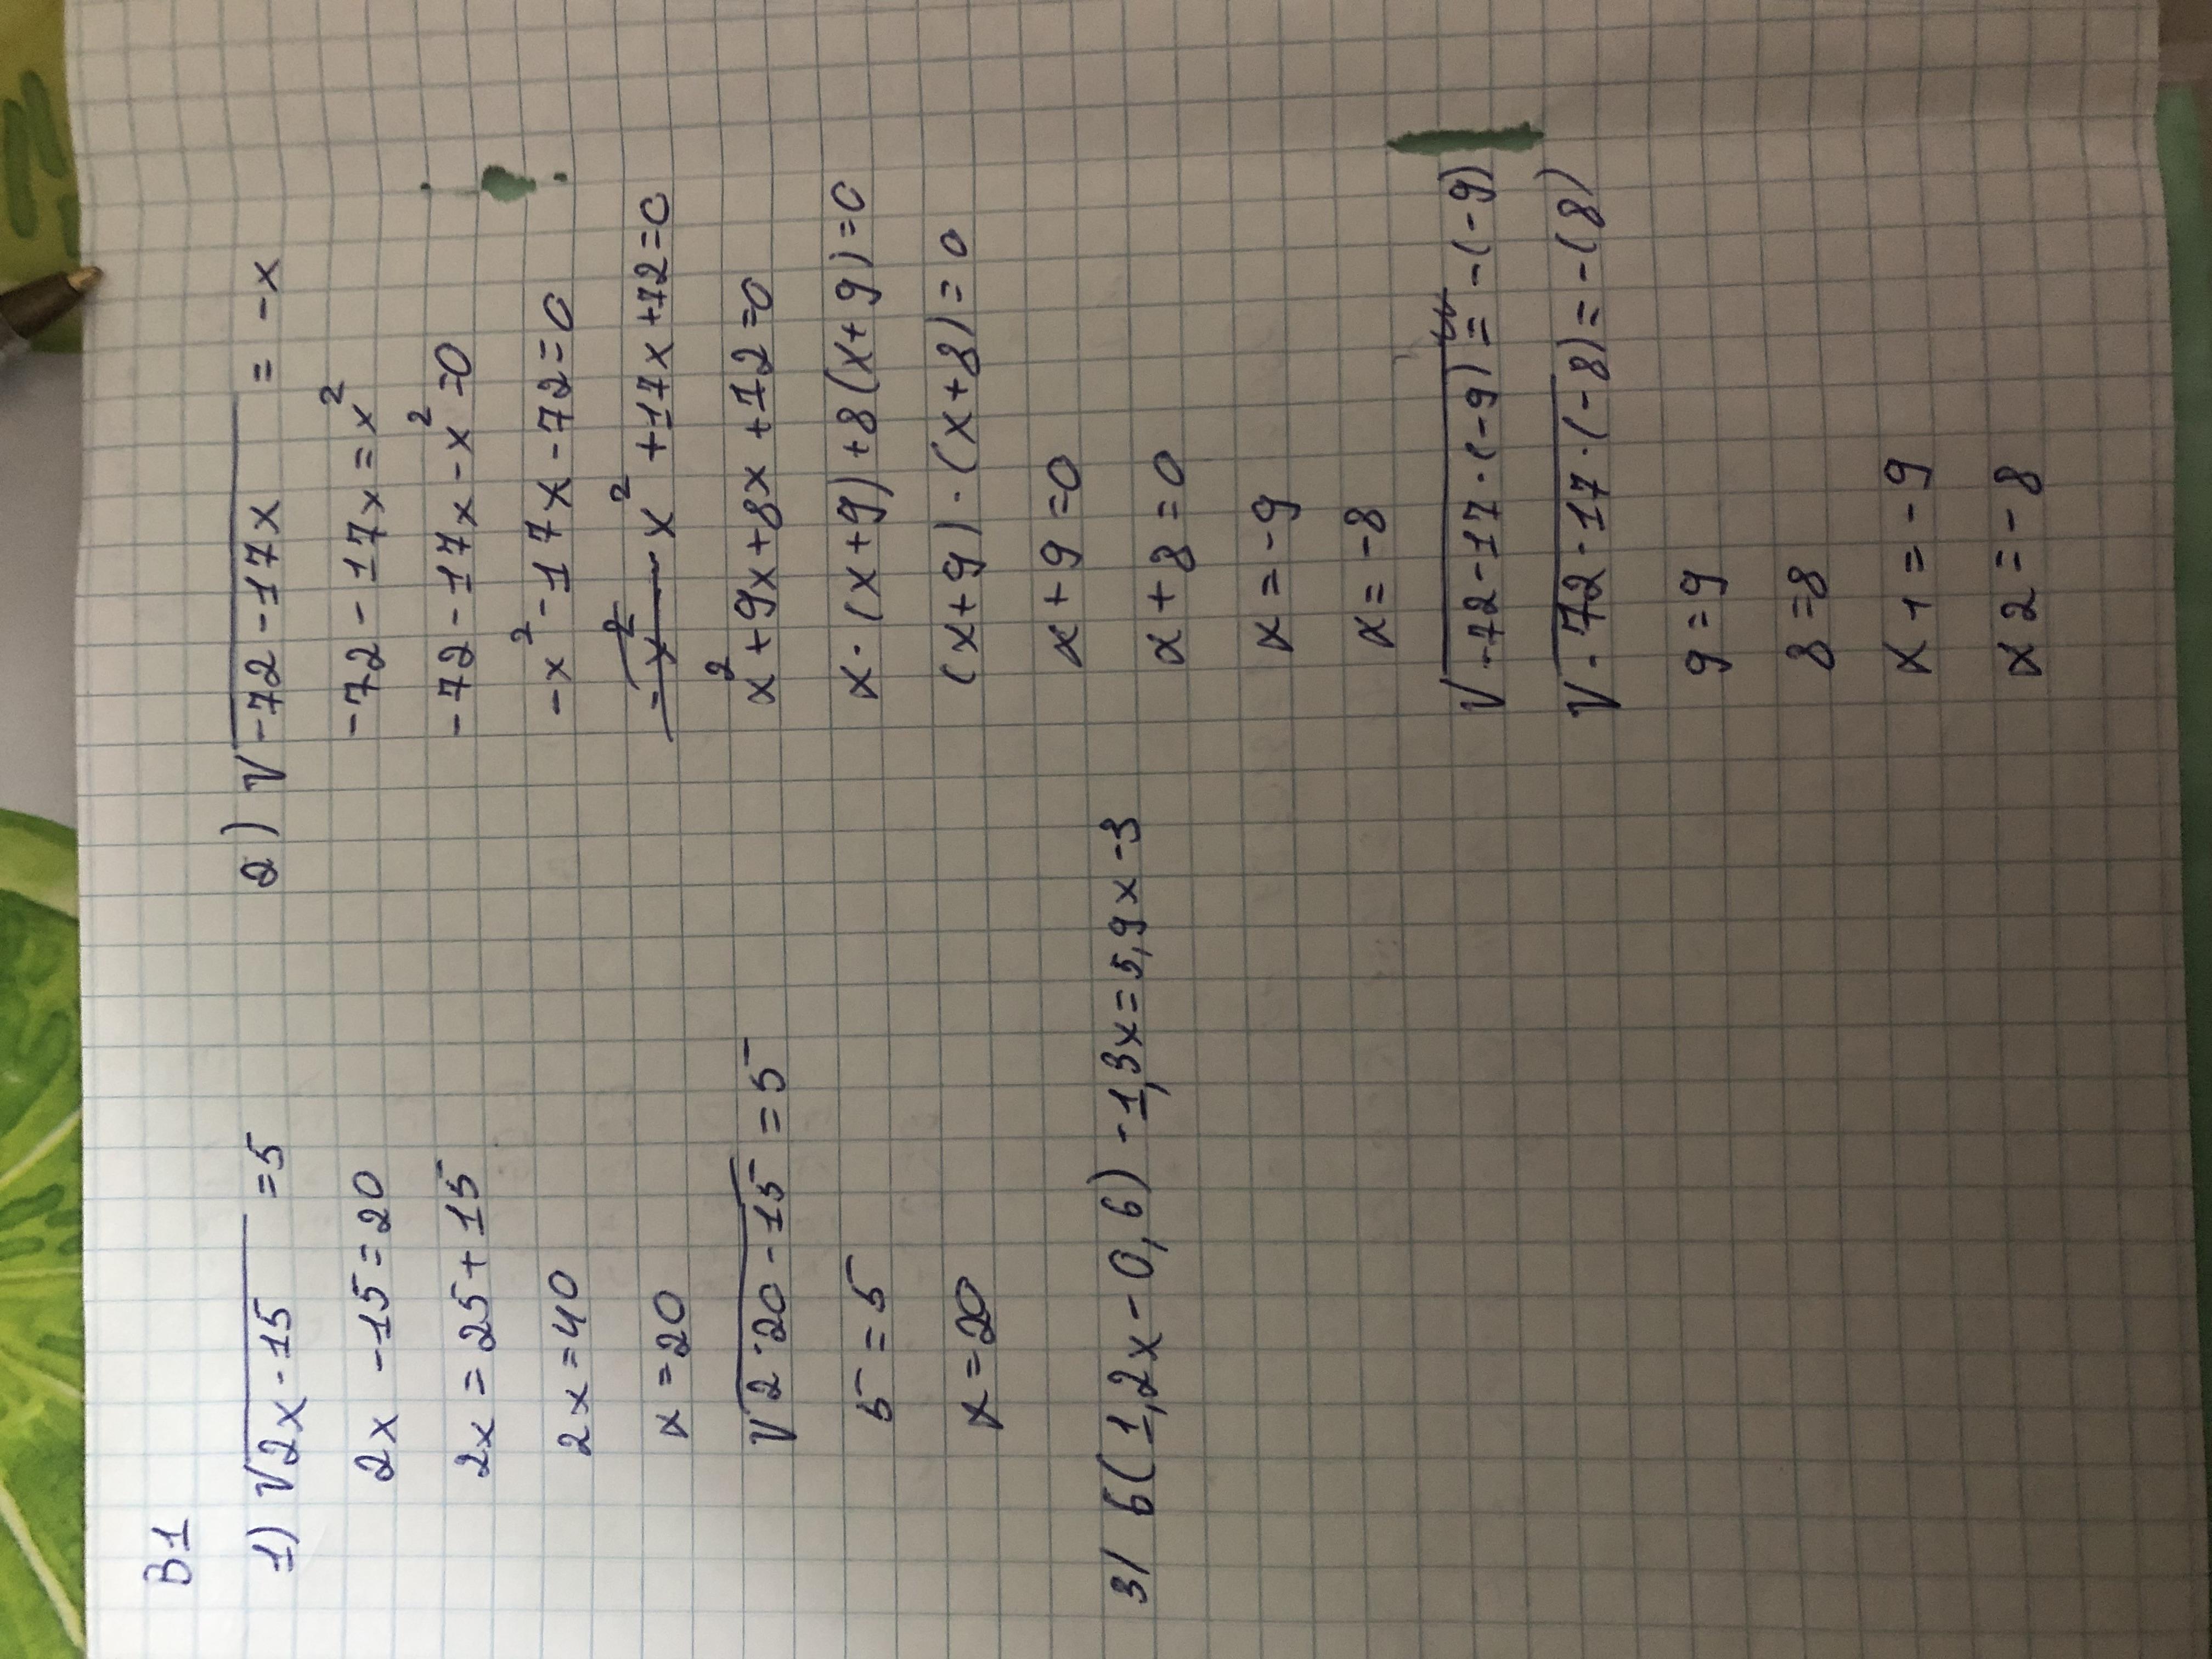 В1
1) √2x-15 =5
2x -15=20
2x = 25+15
2x=40
x=20
√2·20-15 =5
5=5
x=20
2) √-72-17x = -x
-72-17x=x²
-72-17x-x²=0
-x²-17x-72=0
-x² x²+17x+72=0
x²+9x+8x+72=0
x·(x+9)+8(x+9)=0
(x+9)·(x+8)=0
x+9=0
x+8=0
x=-9
x=-8
√-72-17·(-9)=-(-9)
√-72-17·(-8)=-(8)
9=9
8=8
x1=-9
x2=-8
3) 5(1,2x-0,6)-1,3x=5,9x-3